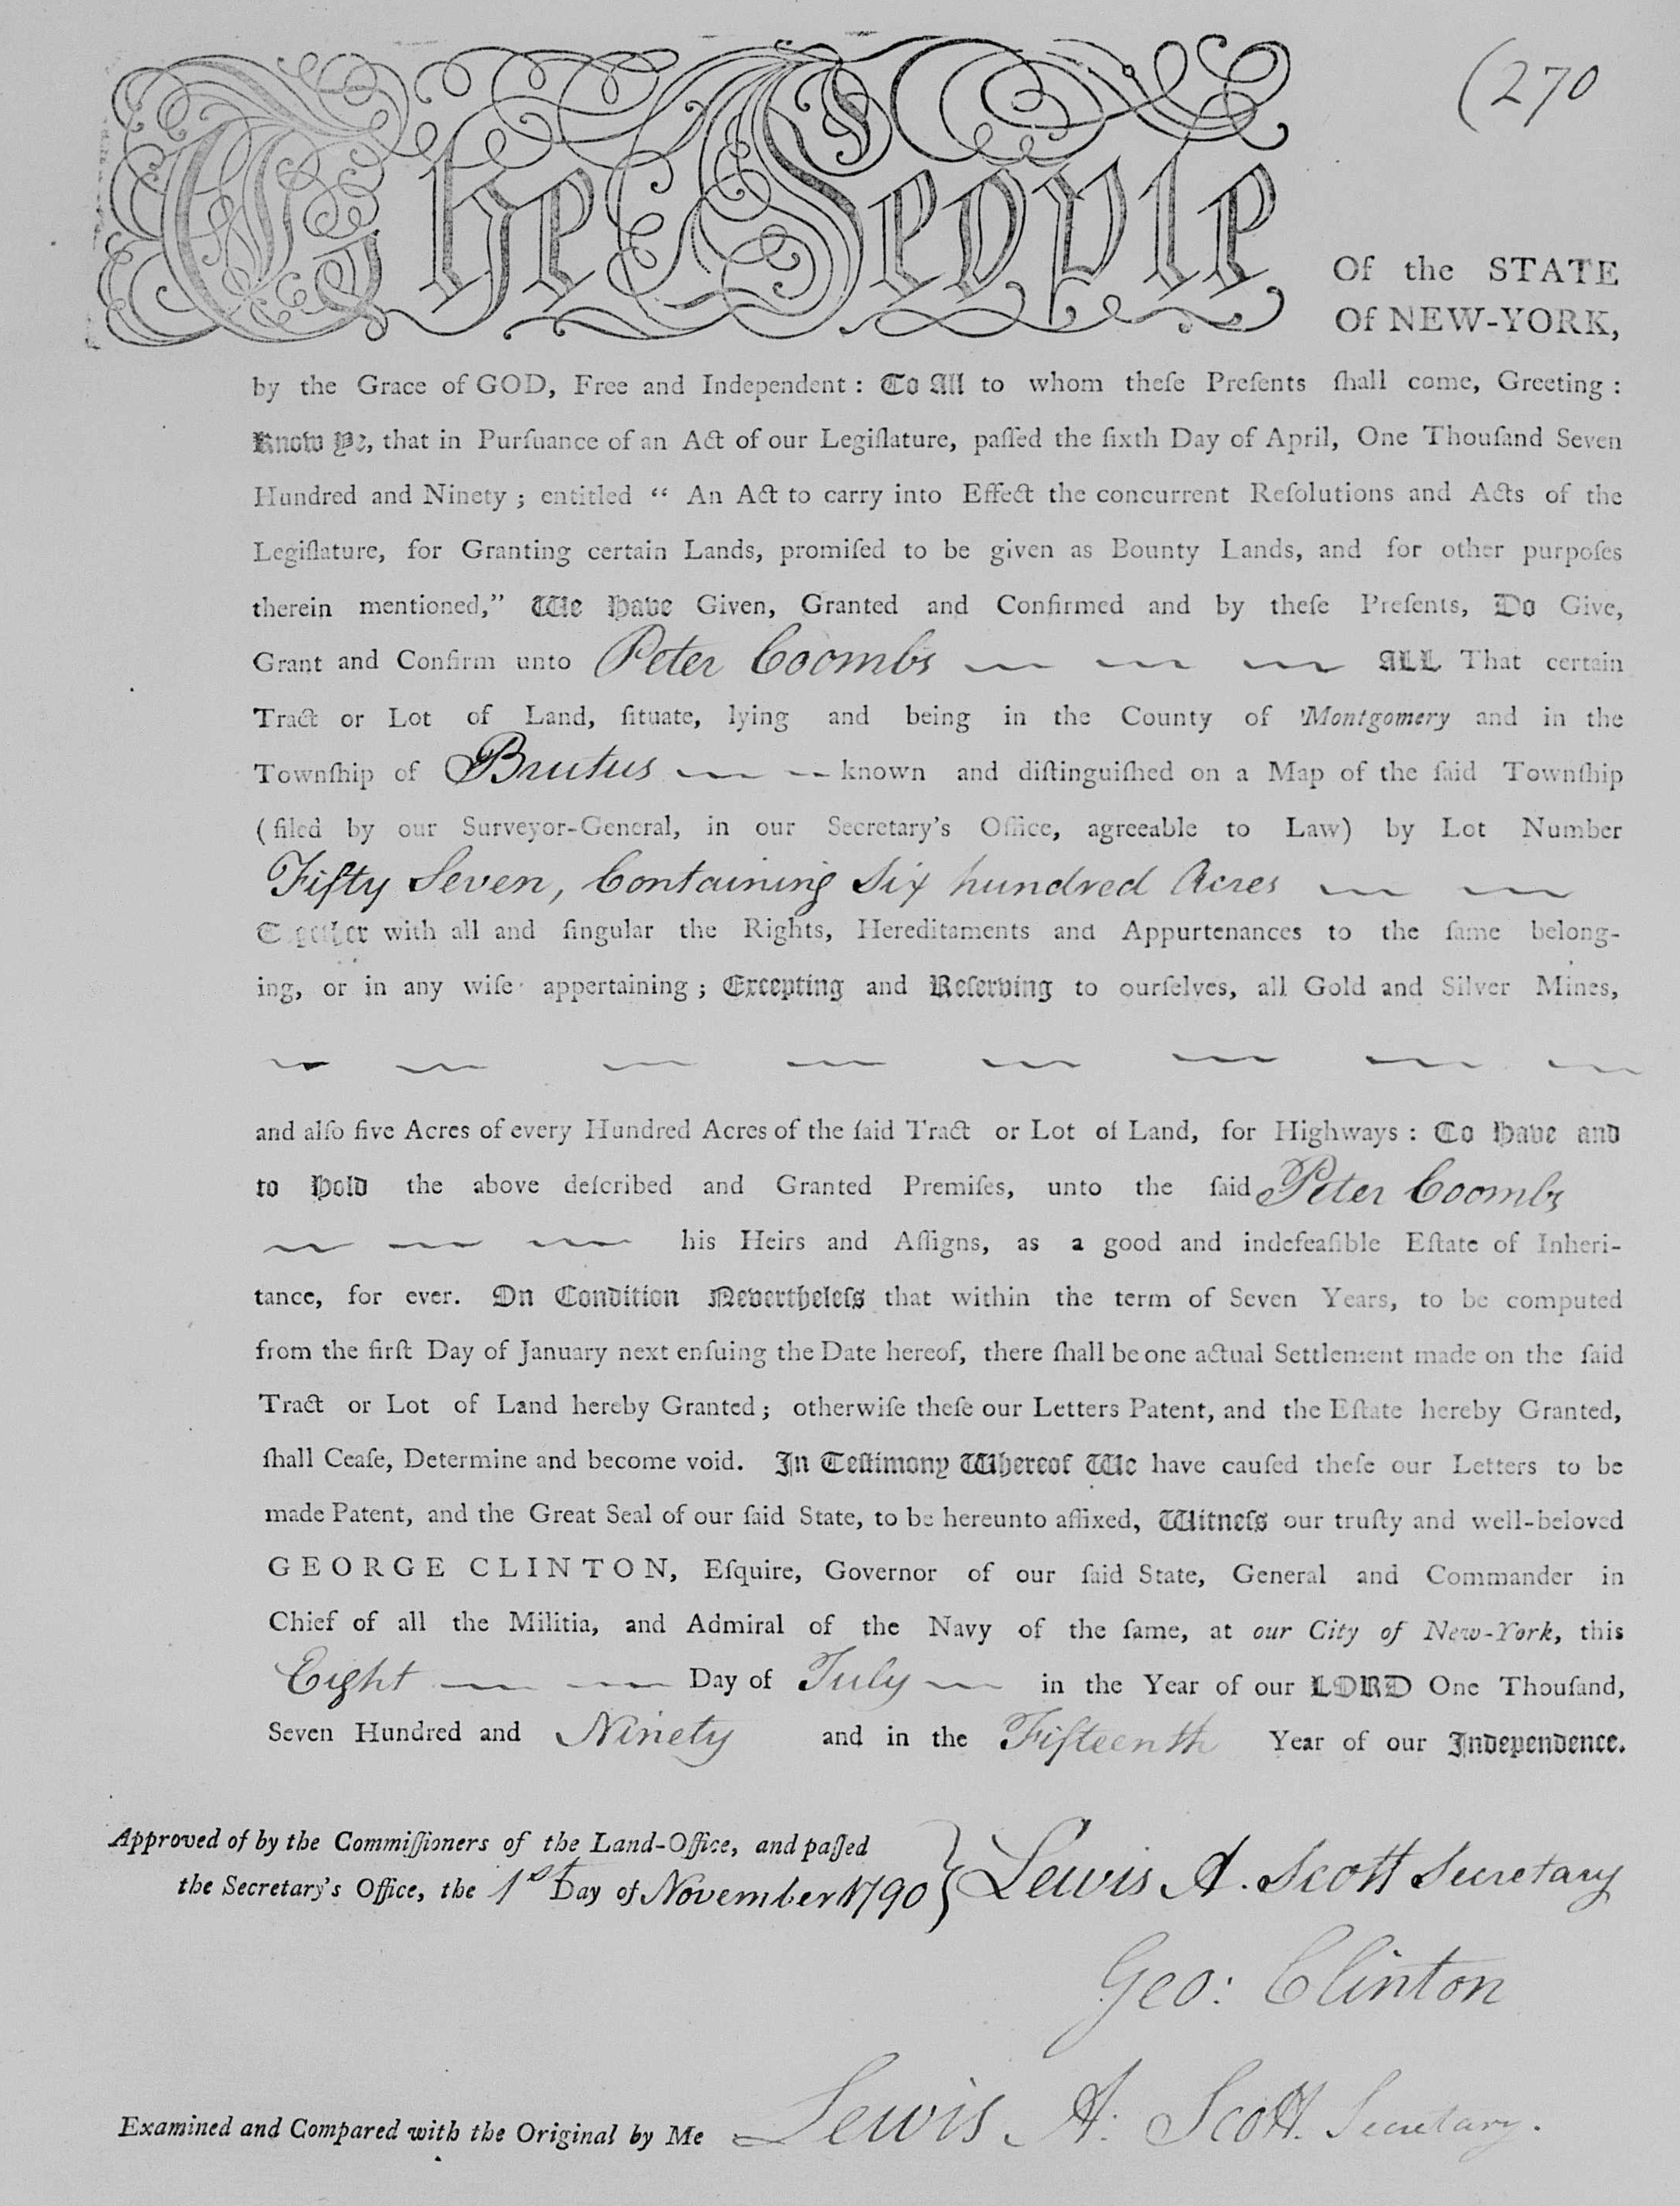 (270
The People
Of the STATE
Of NEW-YORK,
by the Grace of GOD, Free and Independent: To All to whom theſe Preſents ſhall come, Greeting:
Know Ye, that in Purſuance of an Act of our Legiſlature, paſſed the ſixth Day of April, One Thouſand Seven
Hundred and Ninety; entitled “ An Act to carry into Effect the concurrent Reſolutions and Acts of the
Legiſlature, for Granting certain Lands, promiſed to be given as Bounty Lands, and for other purpoſes
therein mentioned,” We Have Given, Granted and Confirmed and by theſe Preſents, Do Give,
Grant and Confirm unto Peter Coombs — — — ALL That certain
Tract or Lot of Land, ſituate, lying and being in the County of Montgomery and in the
Townſhip of Brutus — -- known and diſtinguiſhed on a Map of the ſaid Townſhip
(filed by our Surveyor-General, in our Secretary's Office, agreeable to Law) by Lot Number
Fifty Seven, Containing Six hundred Acres — —
Together with all and ſingular the Rights, Hereditaments and Appurtenances to the ſame belong-
ing, or in any wiſe appertaining; Excepting and Reſerving to ourſelves, all Gold and Silver Mines,
— — — — — — — —
and alſo five Acres of every Hundred Acres of the ſaid Tract or Lot of Land, for Highways: To Have and
to Hold the above deſcribed and Granted Premiſes, unto the ſaid Peter Coombs
— — — his Heirs and Aſſigns, as a good and indefeaſible Eſtate of Inheri-
tance, for ever. On Condition Nevertheleſs that within the term of Seven Years, to be computed
from the firſt Day of January next enſuing the Date hereof, there ſhall be one actual Settlement made on the ſaid
Tract or Lot of Land hereby Granted; otherwiſe theſe our Letters Patent, and the Eſtate hereby Granted,
ſhall Ceaſe, Determine and become void. In Teſtimony Whereof We have cauſed theſe our Letters to be
made Patent, and the Great Seal of our ſaid State, to be hereunto affixed, Witneſs our truſty and well-beloved
GEORGE CLINTON, Eſquire, Governor of our ſaid State, General and Commander in
Chief of all the Militia, and Admiral of the Navy of the ſame, at our City of New-York, this
Eight — — Day of July — in the Year of our LORD One Thouſand,
Seven Hundred and Ninety and in the Fifteenth Year of our Independence.
Approved of by the Commiſſioners of the Land-Office, and paſſed
the Secretary's Office, the 1st Day of November 1790 } Lewis A. Scott Secretary
Geo: Clinton
Examined and Compared with the Original by Me Lewis A: Scott. Secretary.